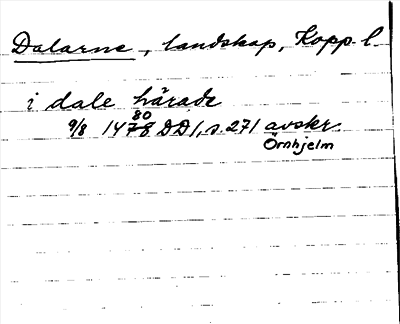 Dalarne, landskap, Kopp. l.
i dale härade
80
9/8 1478 DD1, s. 271 avskr.
Örnhjelm